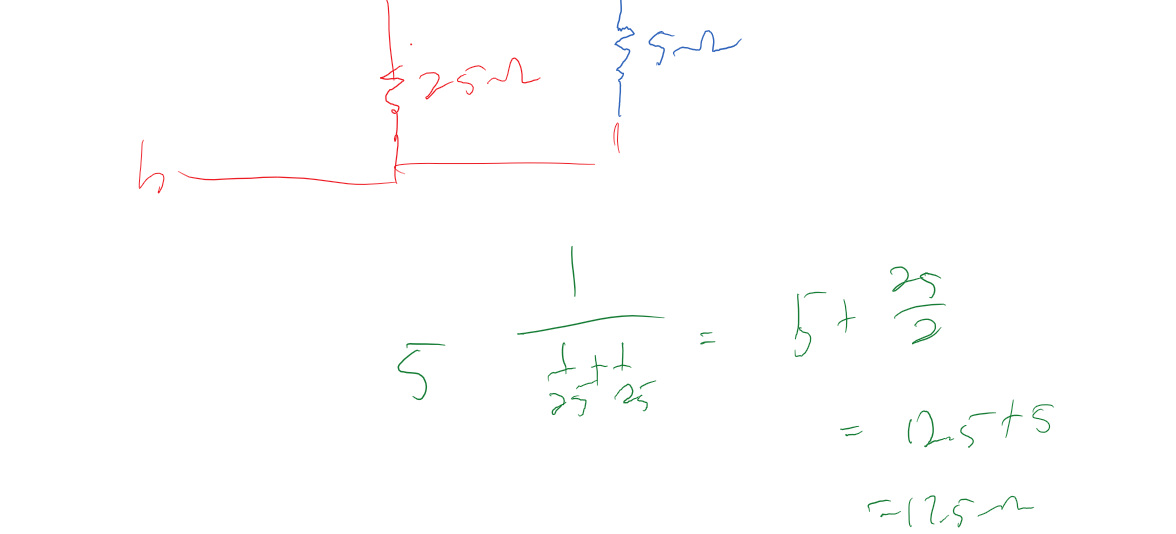 25Ω 5Ω
b
5 1/(1/25 + 1/25) = 5 + 25/2
= 12.5 + 5
= 17.5Ω